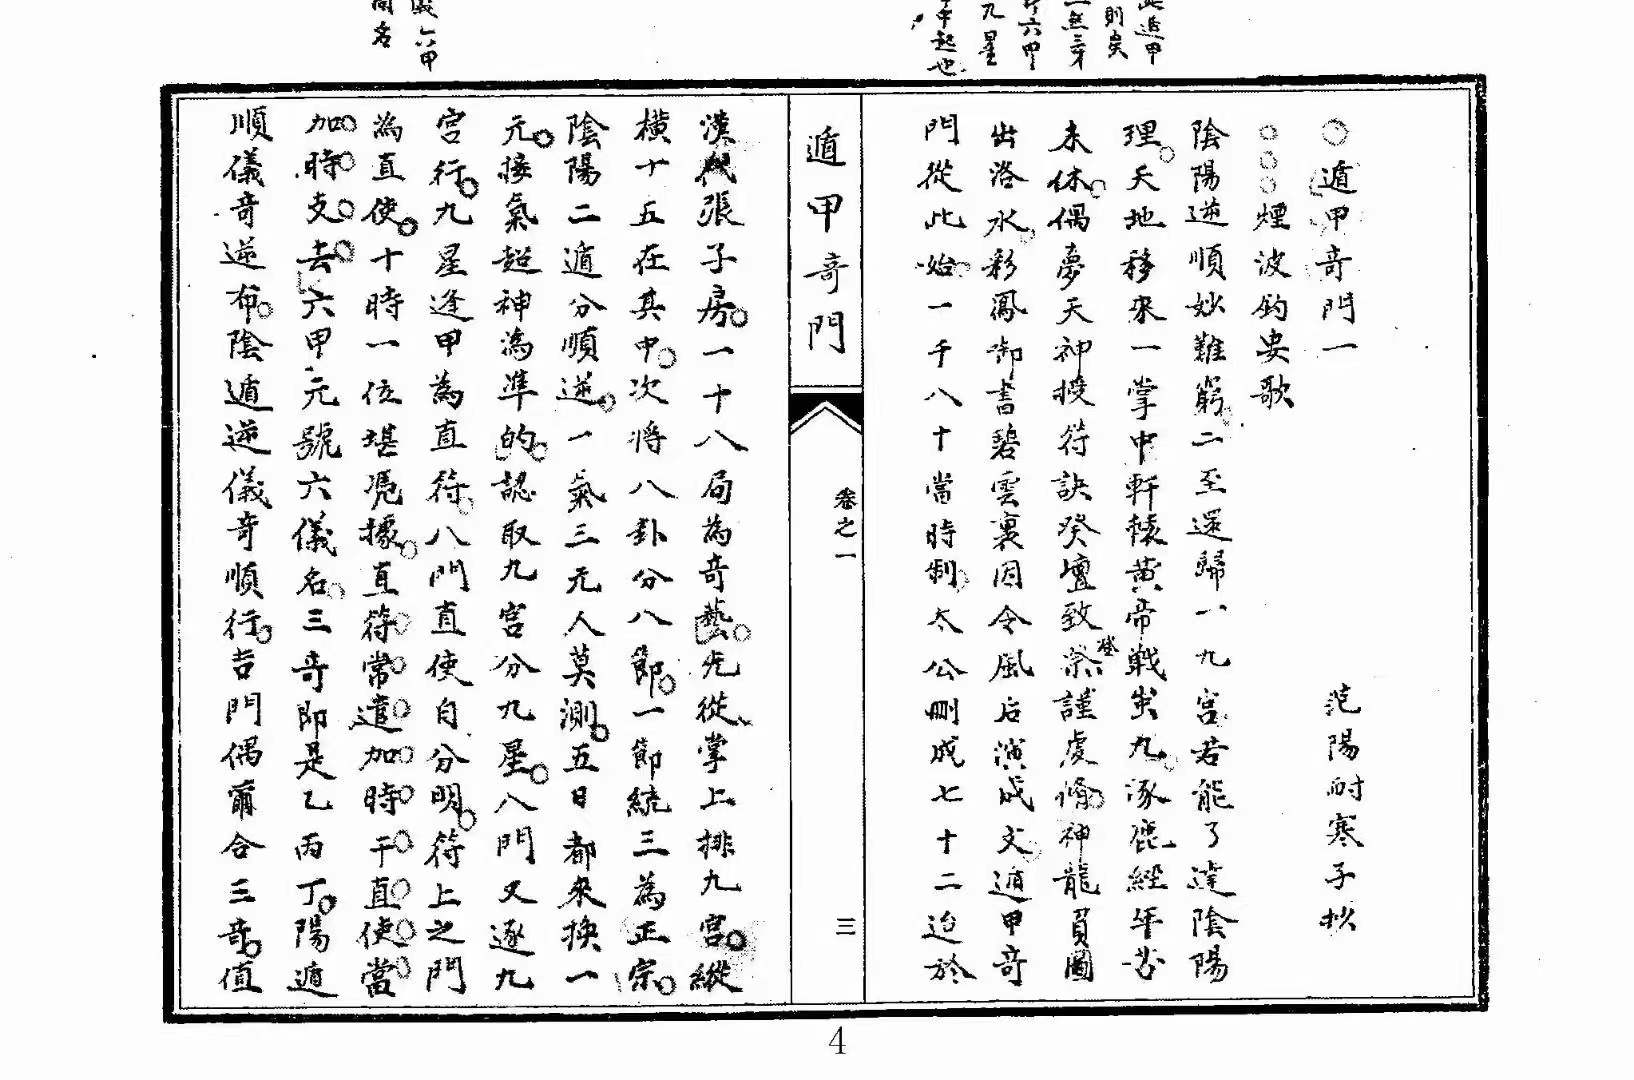 遁甲奇門一 范陽耐寒子抄
煙波釣叟歌
陰陽逆順妙難窮二至還歸一九宮若能了達陰陽
理天地移來一掌中軒轅黃帝戰蚩九涿鹿經年苦
未休偶夢天神授符訣登壇致祭謹虔脩神龍負圖
出洛水彩鳳啣書碧雲裏因令風后演成文遁甲奇
門從此始一千八十當時制太公刪成七十二迨於
遁甲奇門
卷之一
三
漢代張子房一十八局為奇藝先從掌上排九宮縱
橫十五在其中次將八卦分八節一節統三為正宗
陰陽二遁分順逆一氣三元人莫測五日都來換一
元接氣超神為準的認取九宮分九星八門又逐九
宮行九星逢甲為直符八門直使自分明符上之門
為直使十時一位堪憑據直符常遣加時干直使當
加時支去六甲元號六儀名三奇即是乙丙丁陽遁
順儀奇逆布陰遁逆儀奇順行吉門偶爾合三奇值
此遁甲
則矣
六甲
九星
起也
六甲
名
4